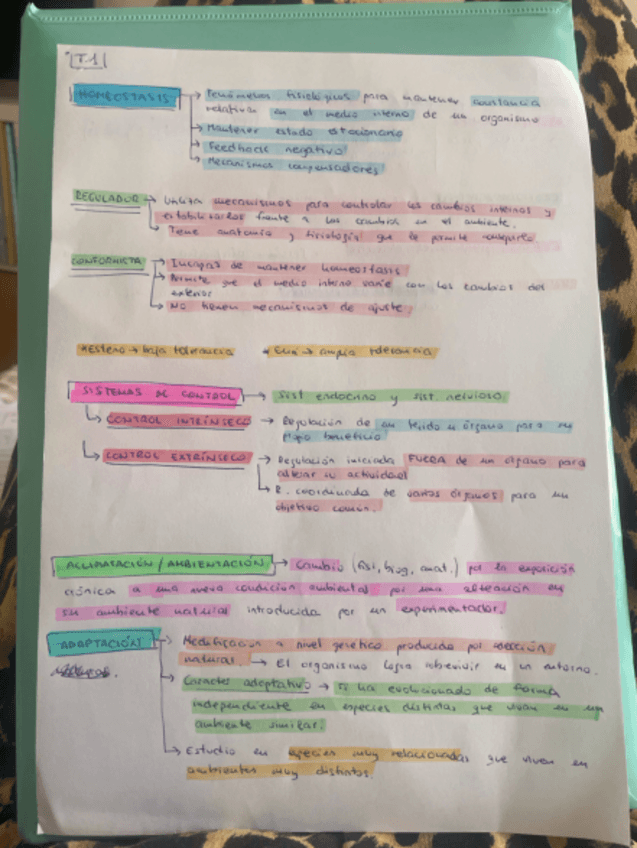 T.1
HOMEOSTASIS → Fenómenos fisiológicos para mantener constancia
relativa en el medio interno de un organismo
→ Mantener estado estacionario
→ Feedback negativo
→ Mecanismos compensadores
REGULADOR → Utiliza mecanismos para controlar los cambios internos y
estabilizarlos frente a los cambios en el ambiente.
→ Tiene anatomía y fisiología que le permite
CONFORMISTA → Incapaz de mantener homeostasis
→ Permite que el medio interno varíe con los cambios del
exterior
→ No tienen mecanismos de ajuste
Esteno → baja tolerancia Euri → amplia tolerancia
SISTEMAS DE CONTROL → Sist endocrino y sist. nervioso.
↳ CONTROL INTRÍNSECO → Regulación de un tejido u órgano para su
propio beneficio
↳ CONTROL EXTRÍNSECO → Regulación iniciada FUERA de un órgano para
alterar su actividad
↳ R. coordinada de varios órganos para un
objetivo común.
ACLIMATACIÓN / AMBIENTACIÓN → Cambio (fisi, bioq, anat.) por la exposición
crónica a una nueva condición ambiental por una alteración en
su ambiente natural introducida por un experimentador.
ADAPTACIÓN → Modificación a nivel genético producida por selección
natural. → El organismo logra sobrevivir en un entorno.
→ Caracter adaptativo → Si ha evolucionado de forma
independiente en especies distintas que vivan en un
ambiente similar.
→ Estudio en especies muy relacionadas que viven en
ambientes muy distintos.